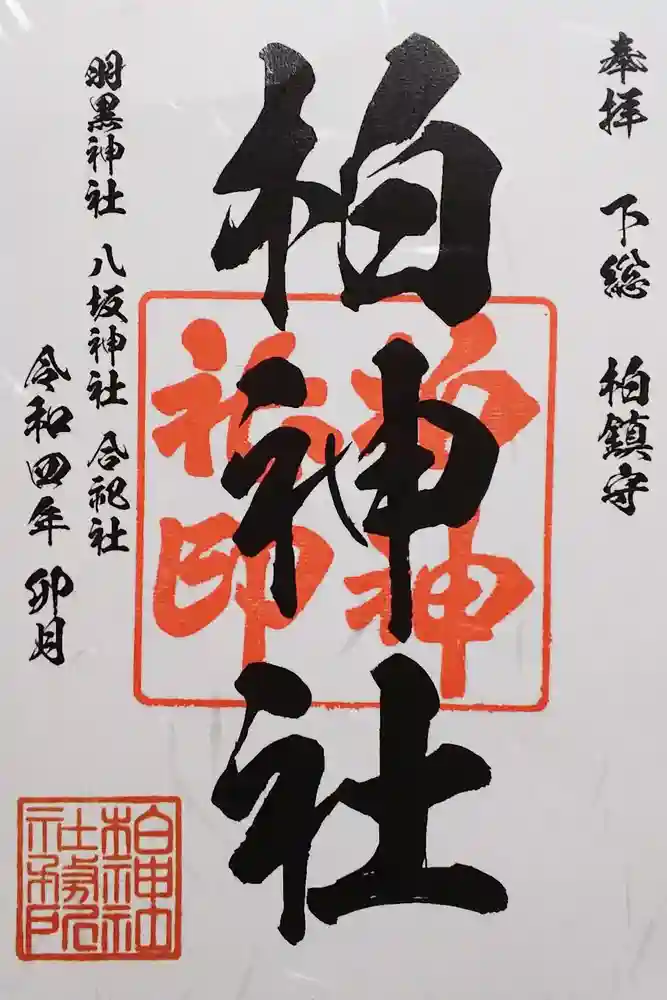 奉拝 下総 柏鎮守
柏神社
羽黒神社 八坂神社 合祀社
令和四年 卯月
柏神
社印
柏神社
社務所
印